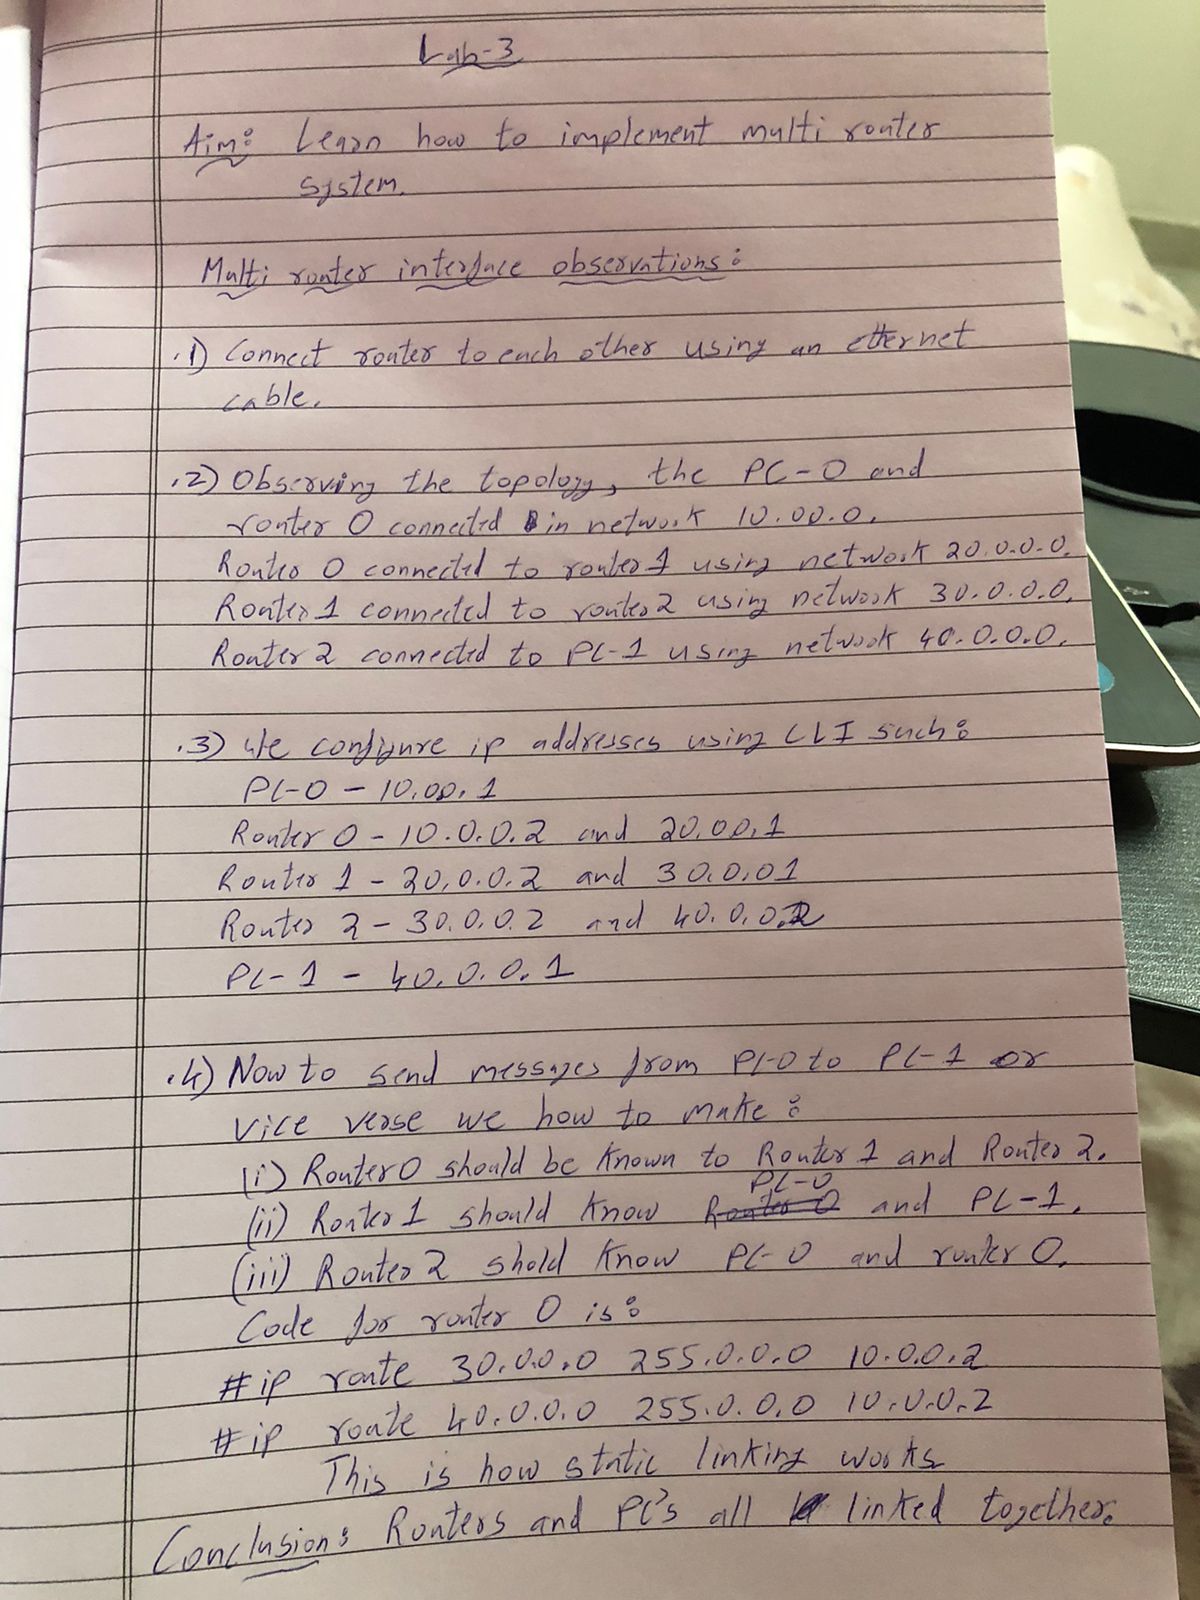 Lab-3
Aim: Learn how to implement multi router
system.
Multi router interface observations:
.1) Connect router to each other using an ethernet
cable.
.2) Observing the topology, the PC-0 and
router 0 connected in network 10.00.0.
Router 0 connected to router 1 using network 20.0.0.0.
Router 1 connected to router 2 using network 30.0.0.0.
Router 2 connected to PC-1 using network 40.0.0.0.
.3) We configure ip addresses using CLI such:
PC-0 - 10.00.1
Router 0 - 10.0.0.2 and 20.00.1
Router 1 - 20.0.0.2 and 30.0.01
Router 2 - 30.0.0.2 and 40.0.0.2
PC-1 - 40.0.0.1
.4) Now to send messages from PC-0 to PC-1 or
vice verse we how to make:
(i) Router 0 should be known to Router 1 and Router 2.
(ii) Router 1 should know PC-0 and PC-1.
(iii) Router 2 shold know PC-0 and router 0.
Code for router 0 is:
#ip route 30.0.0.0 255.0.0.0 10.0.0.2
#ip route 40.0.0.0 255.0.0.0 10.0.0.2
This is how static linking works
Conclusion: Routers and PC's all linked together.